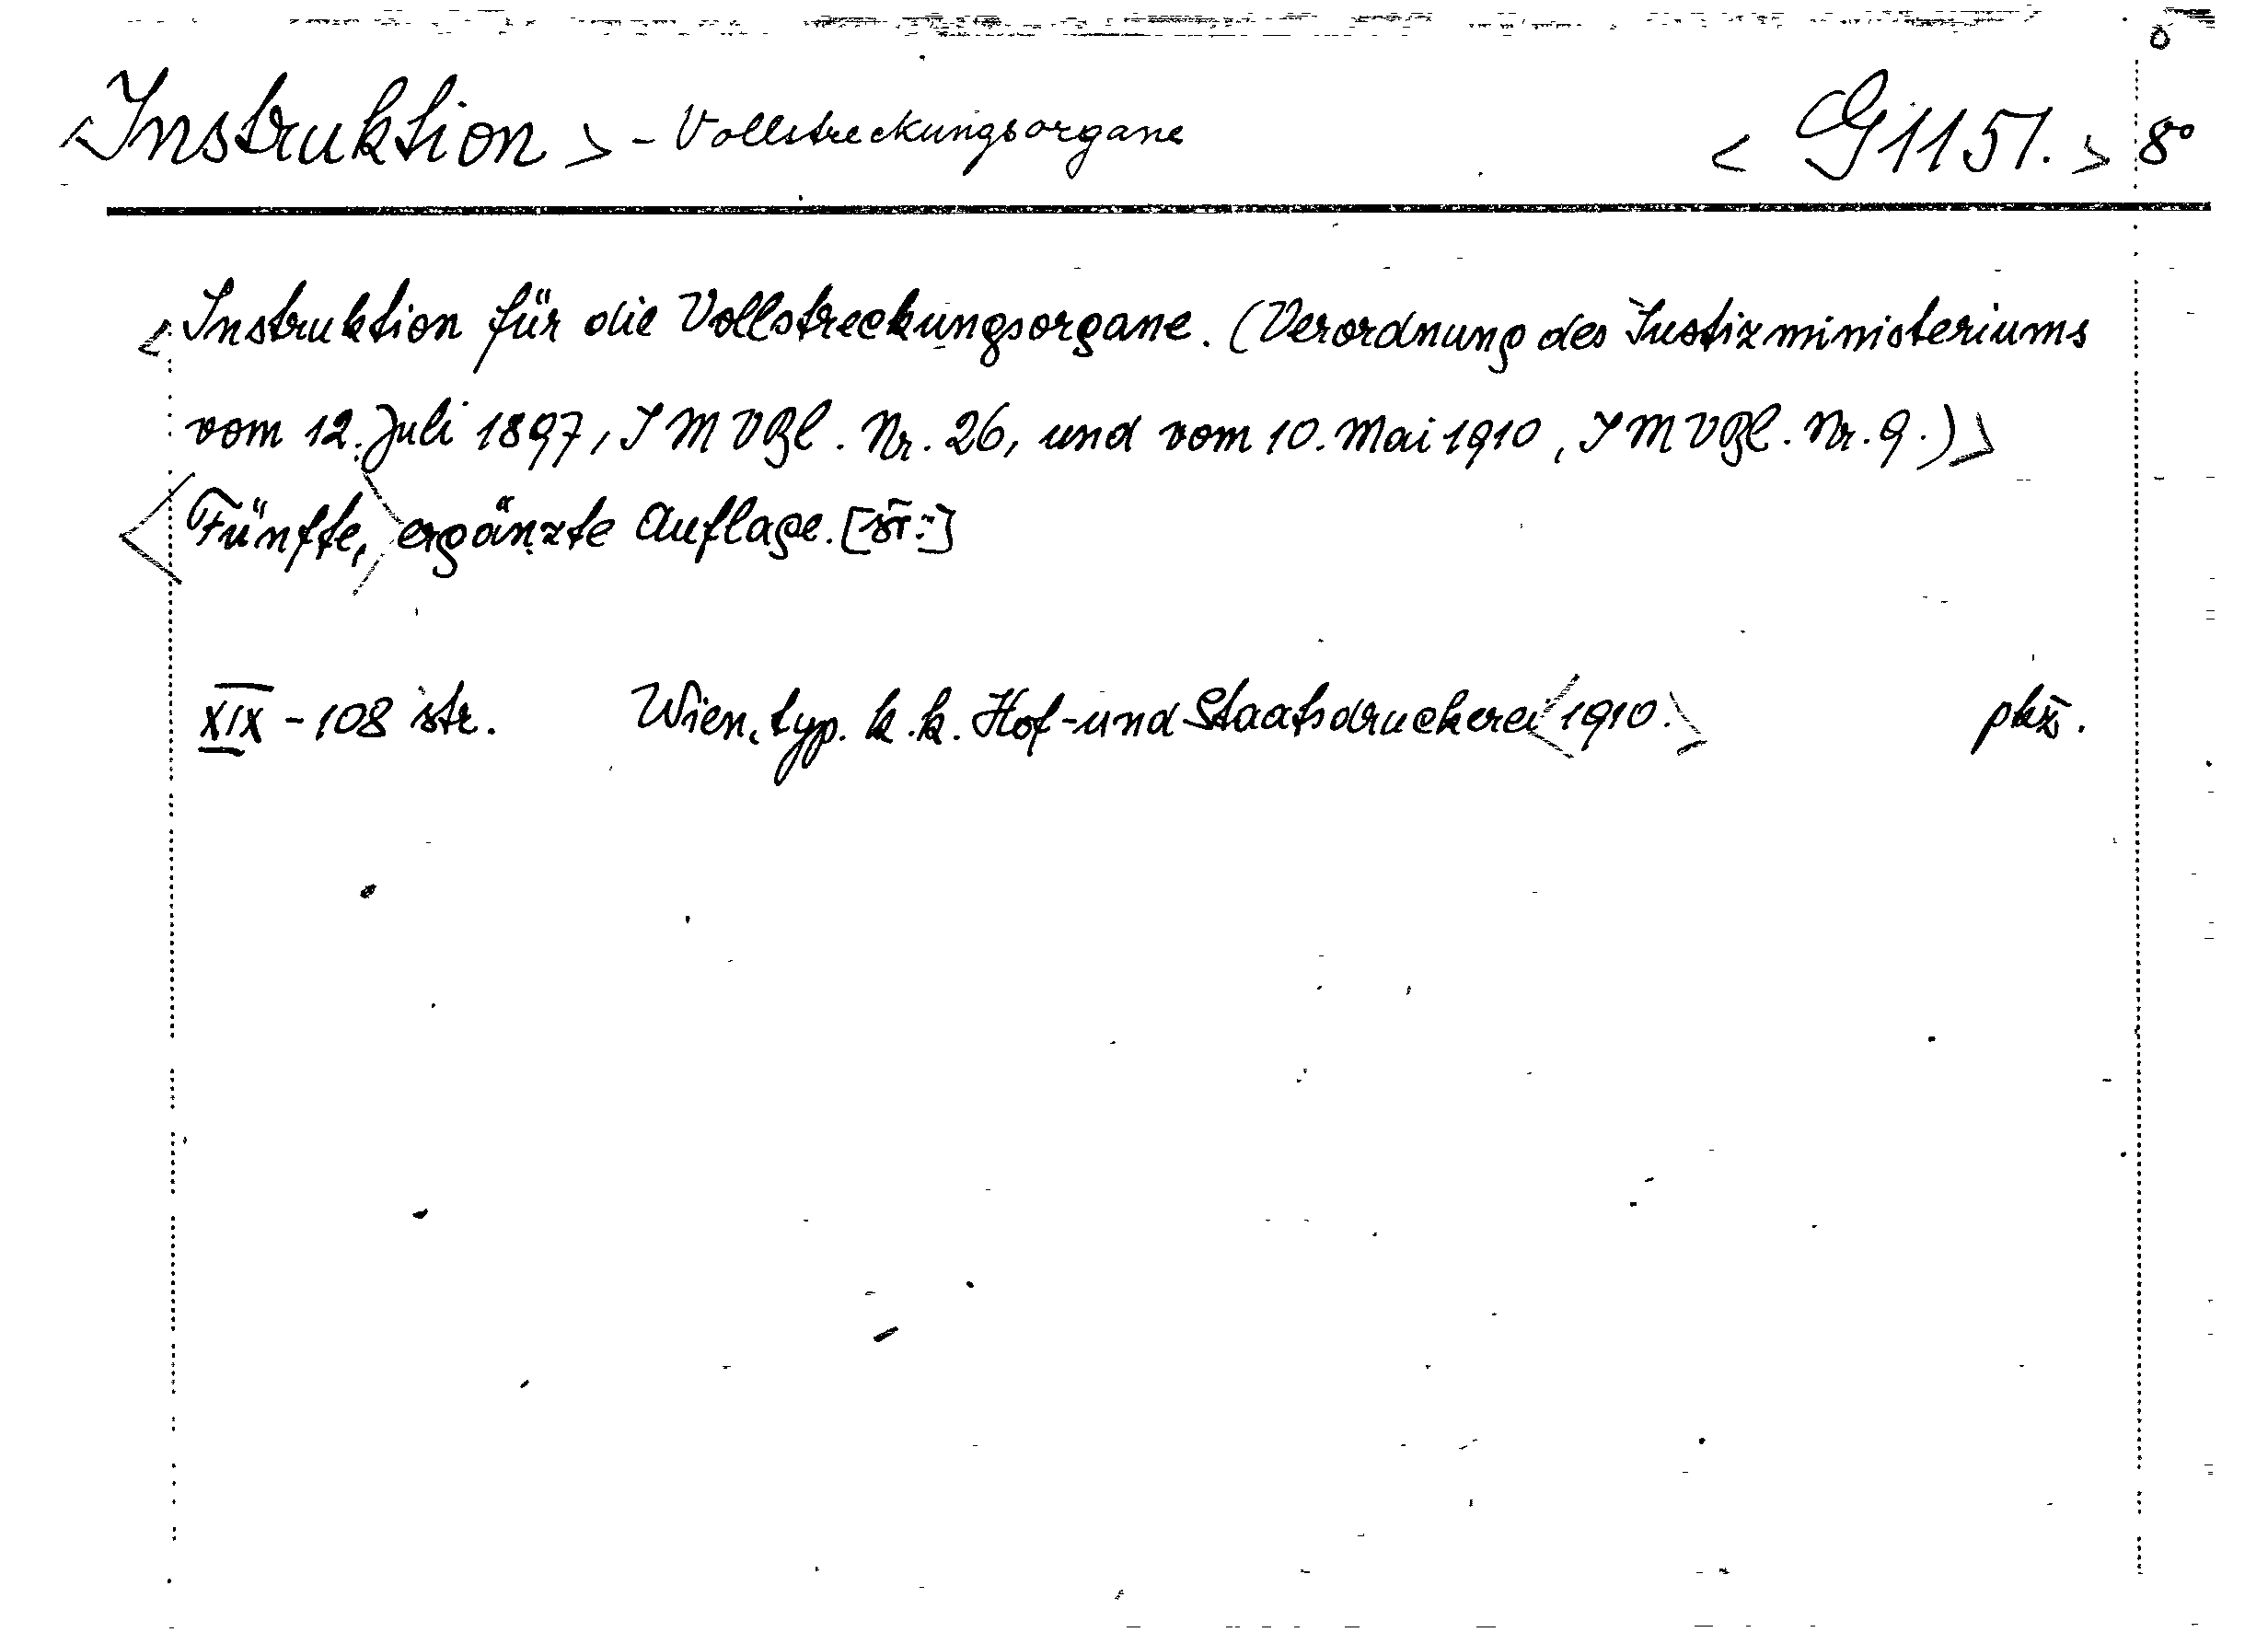 <Instruktion> - Vollstreckungsorgane <G 1151.> 8°
<Instruktion für die Vollstreckungsorgane. (Verordnung des Justizministeriums
vom 12. Juli 1897, JMVBl. Nr. 26, und vom 10. Mai 1910, JMVBl. Nr. 9.)>
<Fünfte,> ergänzte Auflage.
XIX - 108 str. Wien, typ. k.k. Hof- und Staatsdruckerei <1910.>